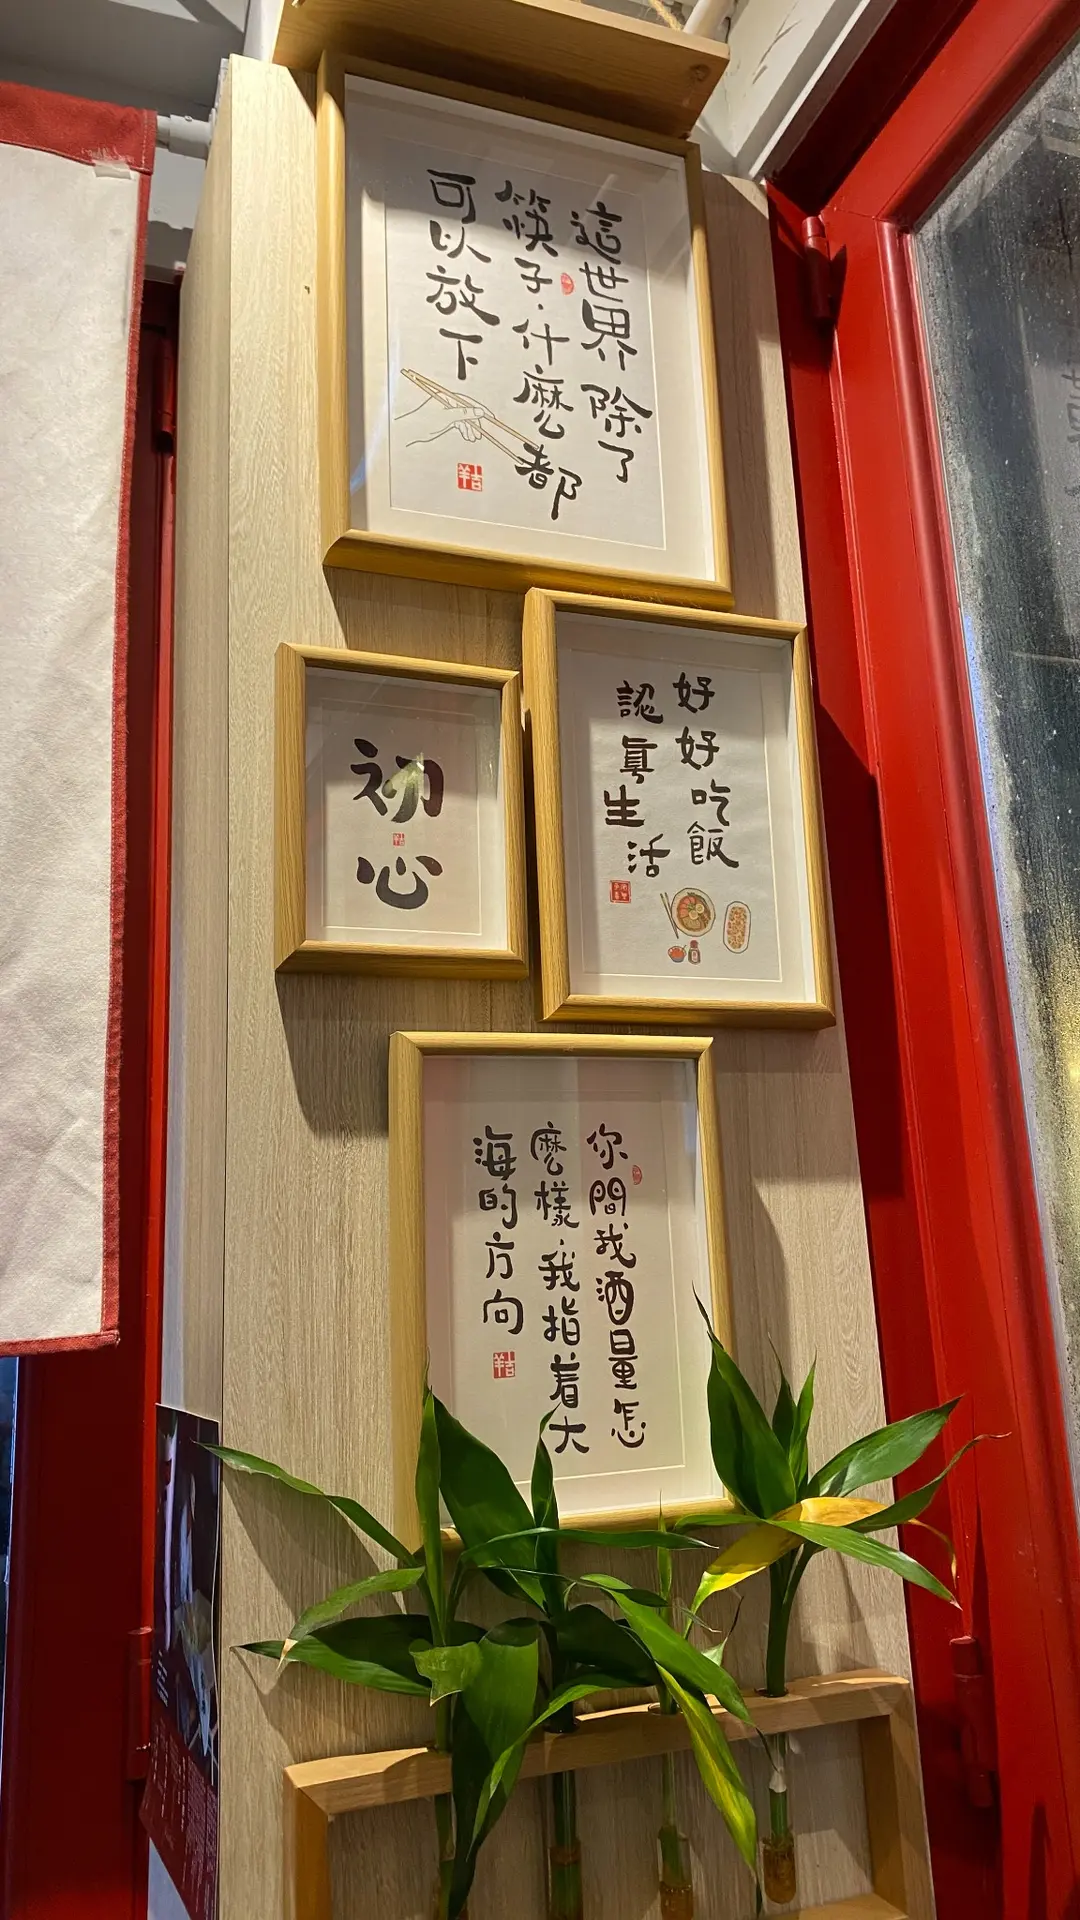 這世界除了
筷子·什麼都
可以放下
吉羊
初
心
好好吃飯
認真生活
你問我酒量怎
麼樣·我指着大
海的方向
吉羊